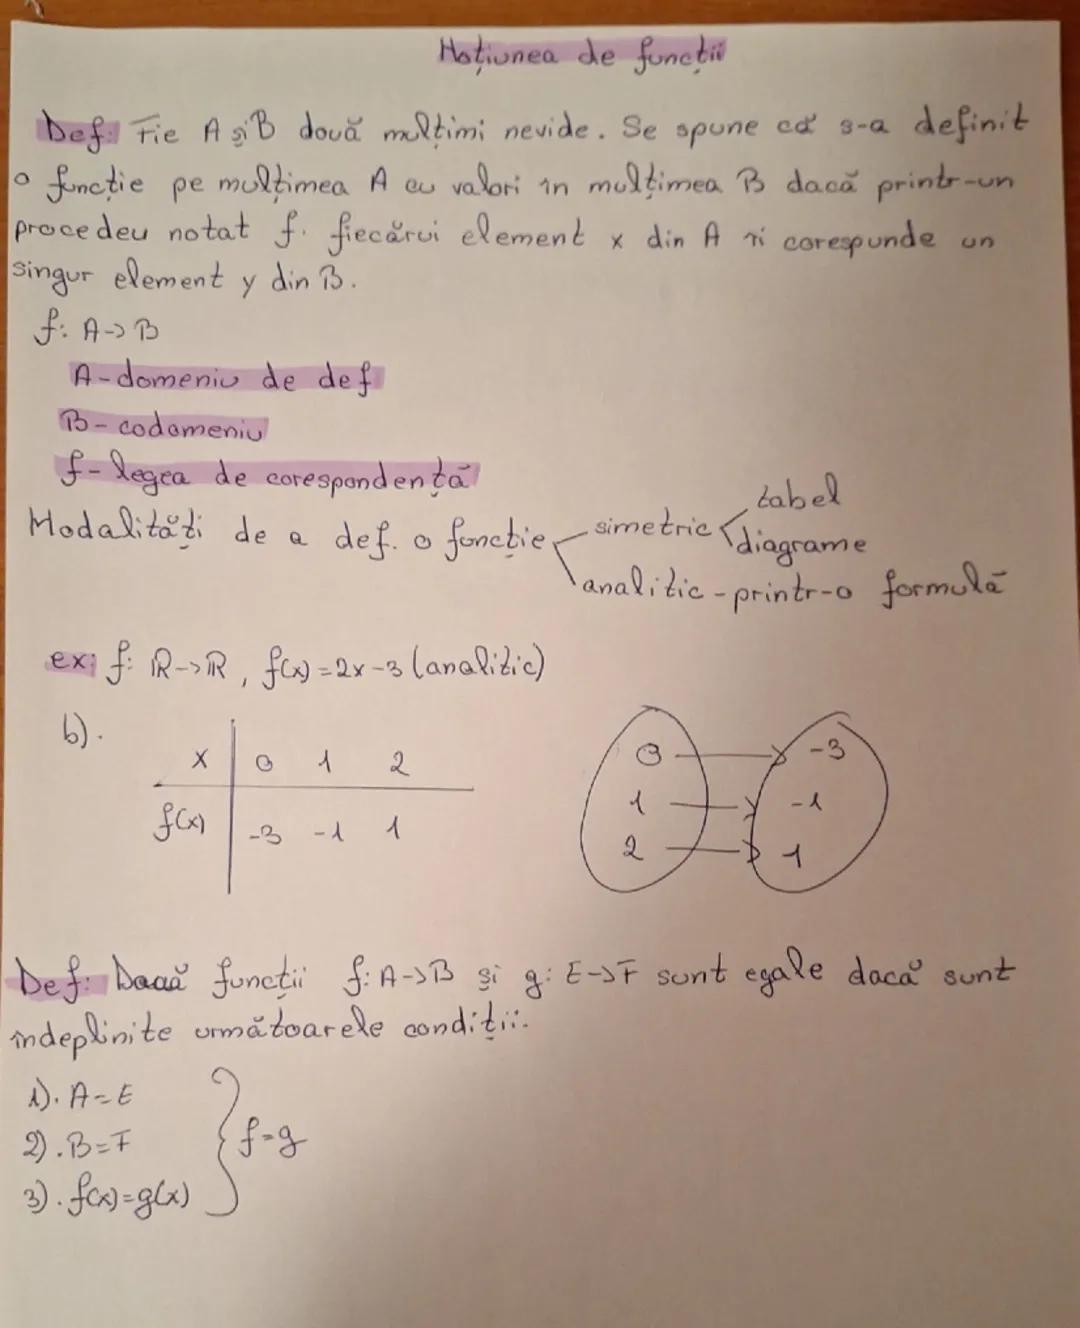 Noțiunea de funcții
Def: Fie A și B două mulțimi nevide. Se spune că s-a definit
o funcție pe mulțimea A cu valori în mulțimea B dacă printr-un
procedeu notat f. fiecărui element x din A îi corespunde un
singur element y din B.
f: A->B
A-domeniu de def
B-codomeniu
f-legea de corespondență
Modalități de a def. o funcție
simetric
tabel
diagrame
analitic-printr-o formulă
ex: f: ℝ->ℝ, f(x)=2x-3 (analitic)
b).
x 0 1 2
f(x) -3 -1 1
0 -3
1 -1
2 1
Def: Dacă funcții f: A->B și g: E->F sunt egale dacă sunt
îndeplinite următoarele condiții.
1). A=E
2). B=F
3). f(x)=g(x)
f=g